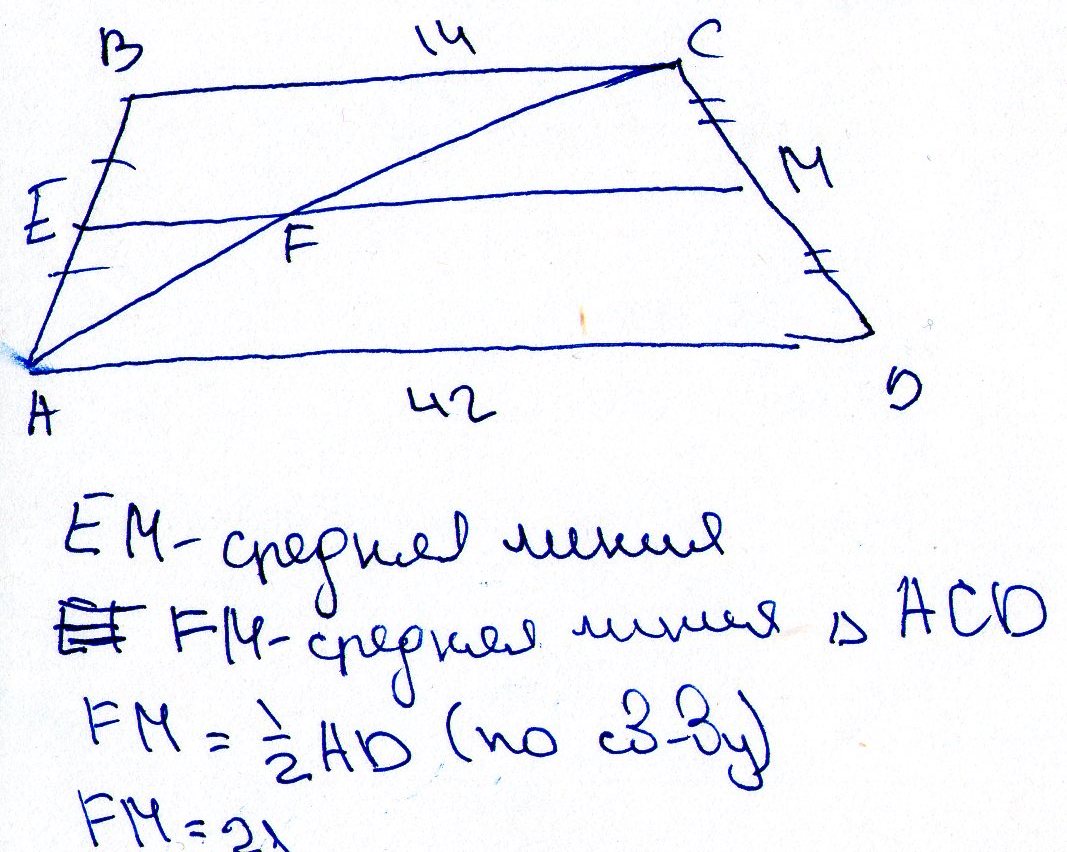 B 14 C
E F M
A 42 D
EM - средняя линия
FM - средняя линия △ ACD
FM = 1/2 AD (по св-ву)
FM = 21